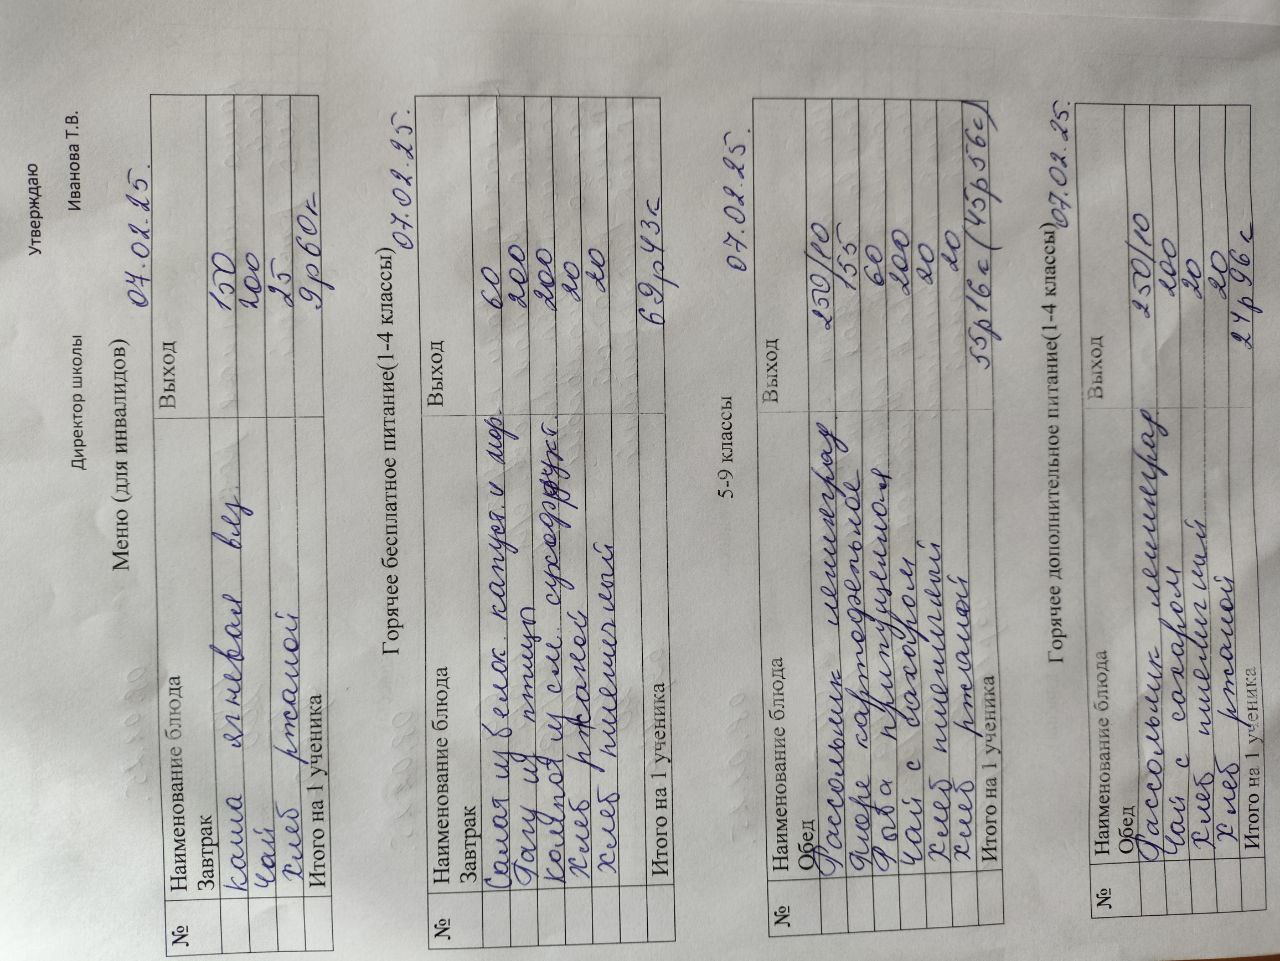 Утверждаю
Директор школы Иванова Т.В.
Меню (для инвалидов) 07.02.25.
№ Наименование блюда Выход
Завтрак
каша ягневая вяз. 150
чай 200
хлеб ржаной 25
Итого на 1 ученика 9р60к
Горячее бесплатное питание(1-4 классы) 07.02.25.
№ Наименование блюда Выход
Завтрак
Салат из белок. капуст. и мор. 60
Рагу из птицы 200
компот из см. сухофрукт. 200
хлеб ржаной 20
хлеб пшеничный 20
Итого на 1 ученика 69р43к
5-9 классы 07.02.25.
№ Наименование блюда Выход
Обед
Рассольник ленинград. 250/10
Пюре картофельное 155
Рыба припущенная 60
чай с сахаром 200
хлеб пшеничный 20
хлеб ржаной 20
Итого на 1 ученика 55р16к (45р56к)
Горячее дополнительное питание(1-4 классы) 07.02.25.
№ Наименование блюда Выход
Обед
Рассольник ленинград 250/10
Чай с сахаром 200
хлеб пшеничный 20
хлеб ржаной 20
Итого на 1 ученика 24р96к